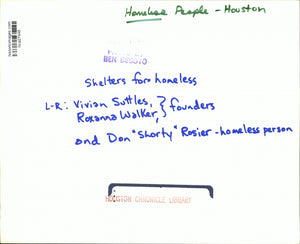 Homeless People - Houston
BEN DESOTO
Shelters for homeless
L-R: Vivian Suttles, } founders
Roxanna Walker,
and Don "Shorty" Rosier - homeless person
HOUSTON CHRONICLE LIBRARY